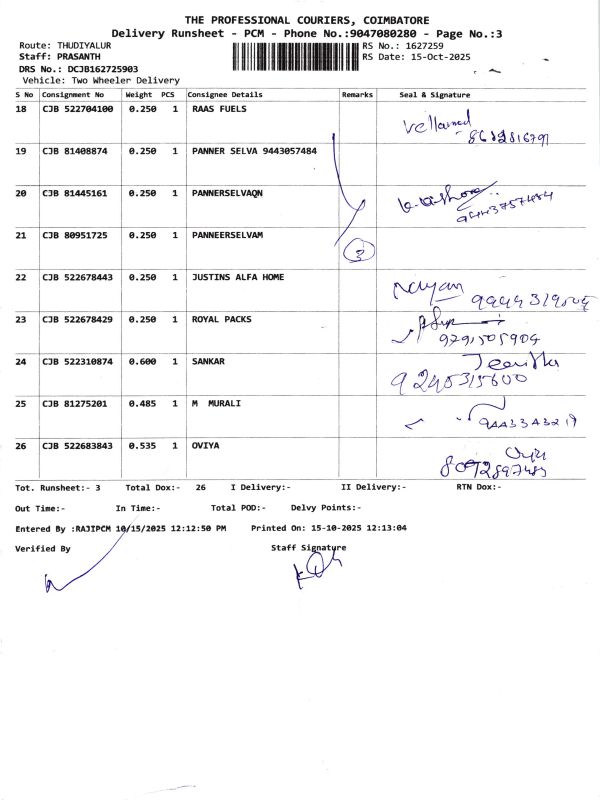 THE PROFESSIONAL COURIERS, COIMBATORE
Delivery Runsheet - PCM - Phone No.:9047080280 - Page No.:3
Route: THUDIYALUR RS No.: 1627259
Staff: PRASANTH RS Date: 15-Oct-2025
DRS No.: DCJB162725903
Vehicle: Two Wheeler Delivery
S No Consignment No Weight PCS Consignee Details Remarks Seal & Signature
18 CJB 522704100 0.250 1 RAAS FUELS
19 CJB 81408874 0.250 1 PANNER SELVA 9443057484
20 CJB 81445161 0.250 1 PANNERSELVAQN
21 CJB 80951725 0.250 1 PANNEERSELVAM 3
22 CJB 522678443 0.250 1 JUSTINS ALFA HOME
23 CJB 522678429 0.250 1 ROYAL PACKS 9791505904
24 CJB 522310874 0.600 1 SANKAR
25 CJB 81275201 0.485 1 M MURALI
26 CJB 522683843 0.535 1 OVIYA
Tot. Runsheet:- 3 Total Dox:- 26 I Delivery:- II Delivery:- RTN Dox:-
Out Time:- In Time:- Total POD:- Delvy Points:-
Entered By :RAJIPCM 10/15/2025 12:12:50 PM Printed On: 15-10-2025 12:13:04
Verified By Staff Signature